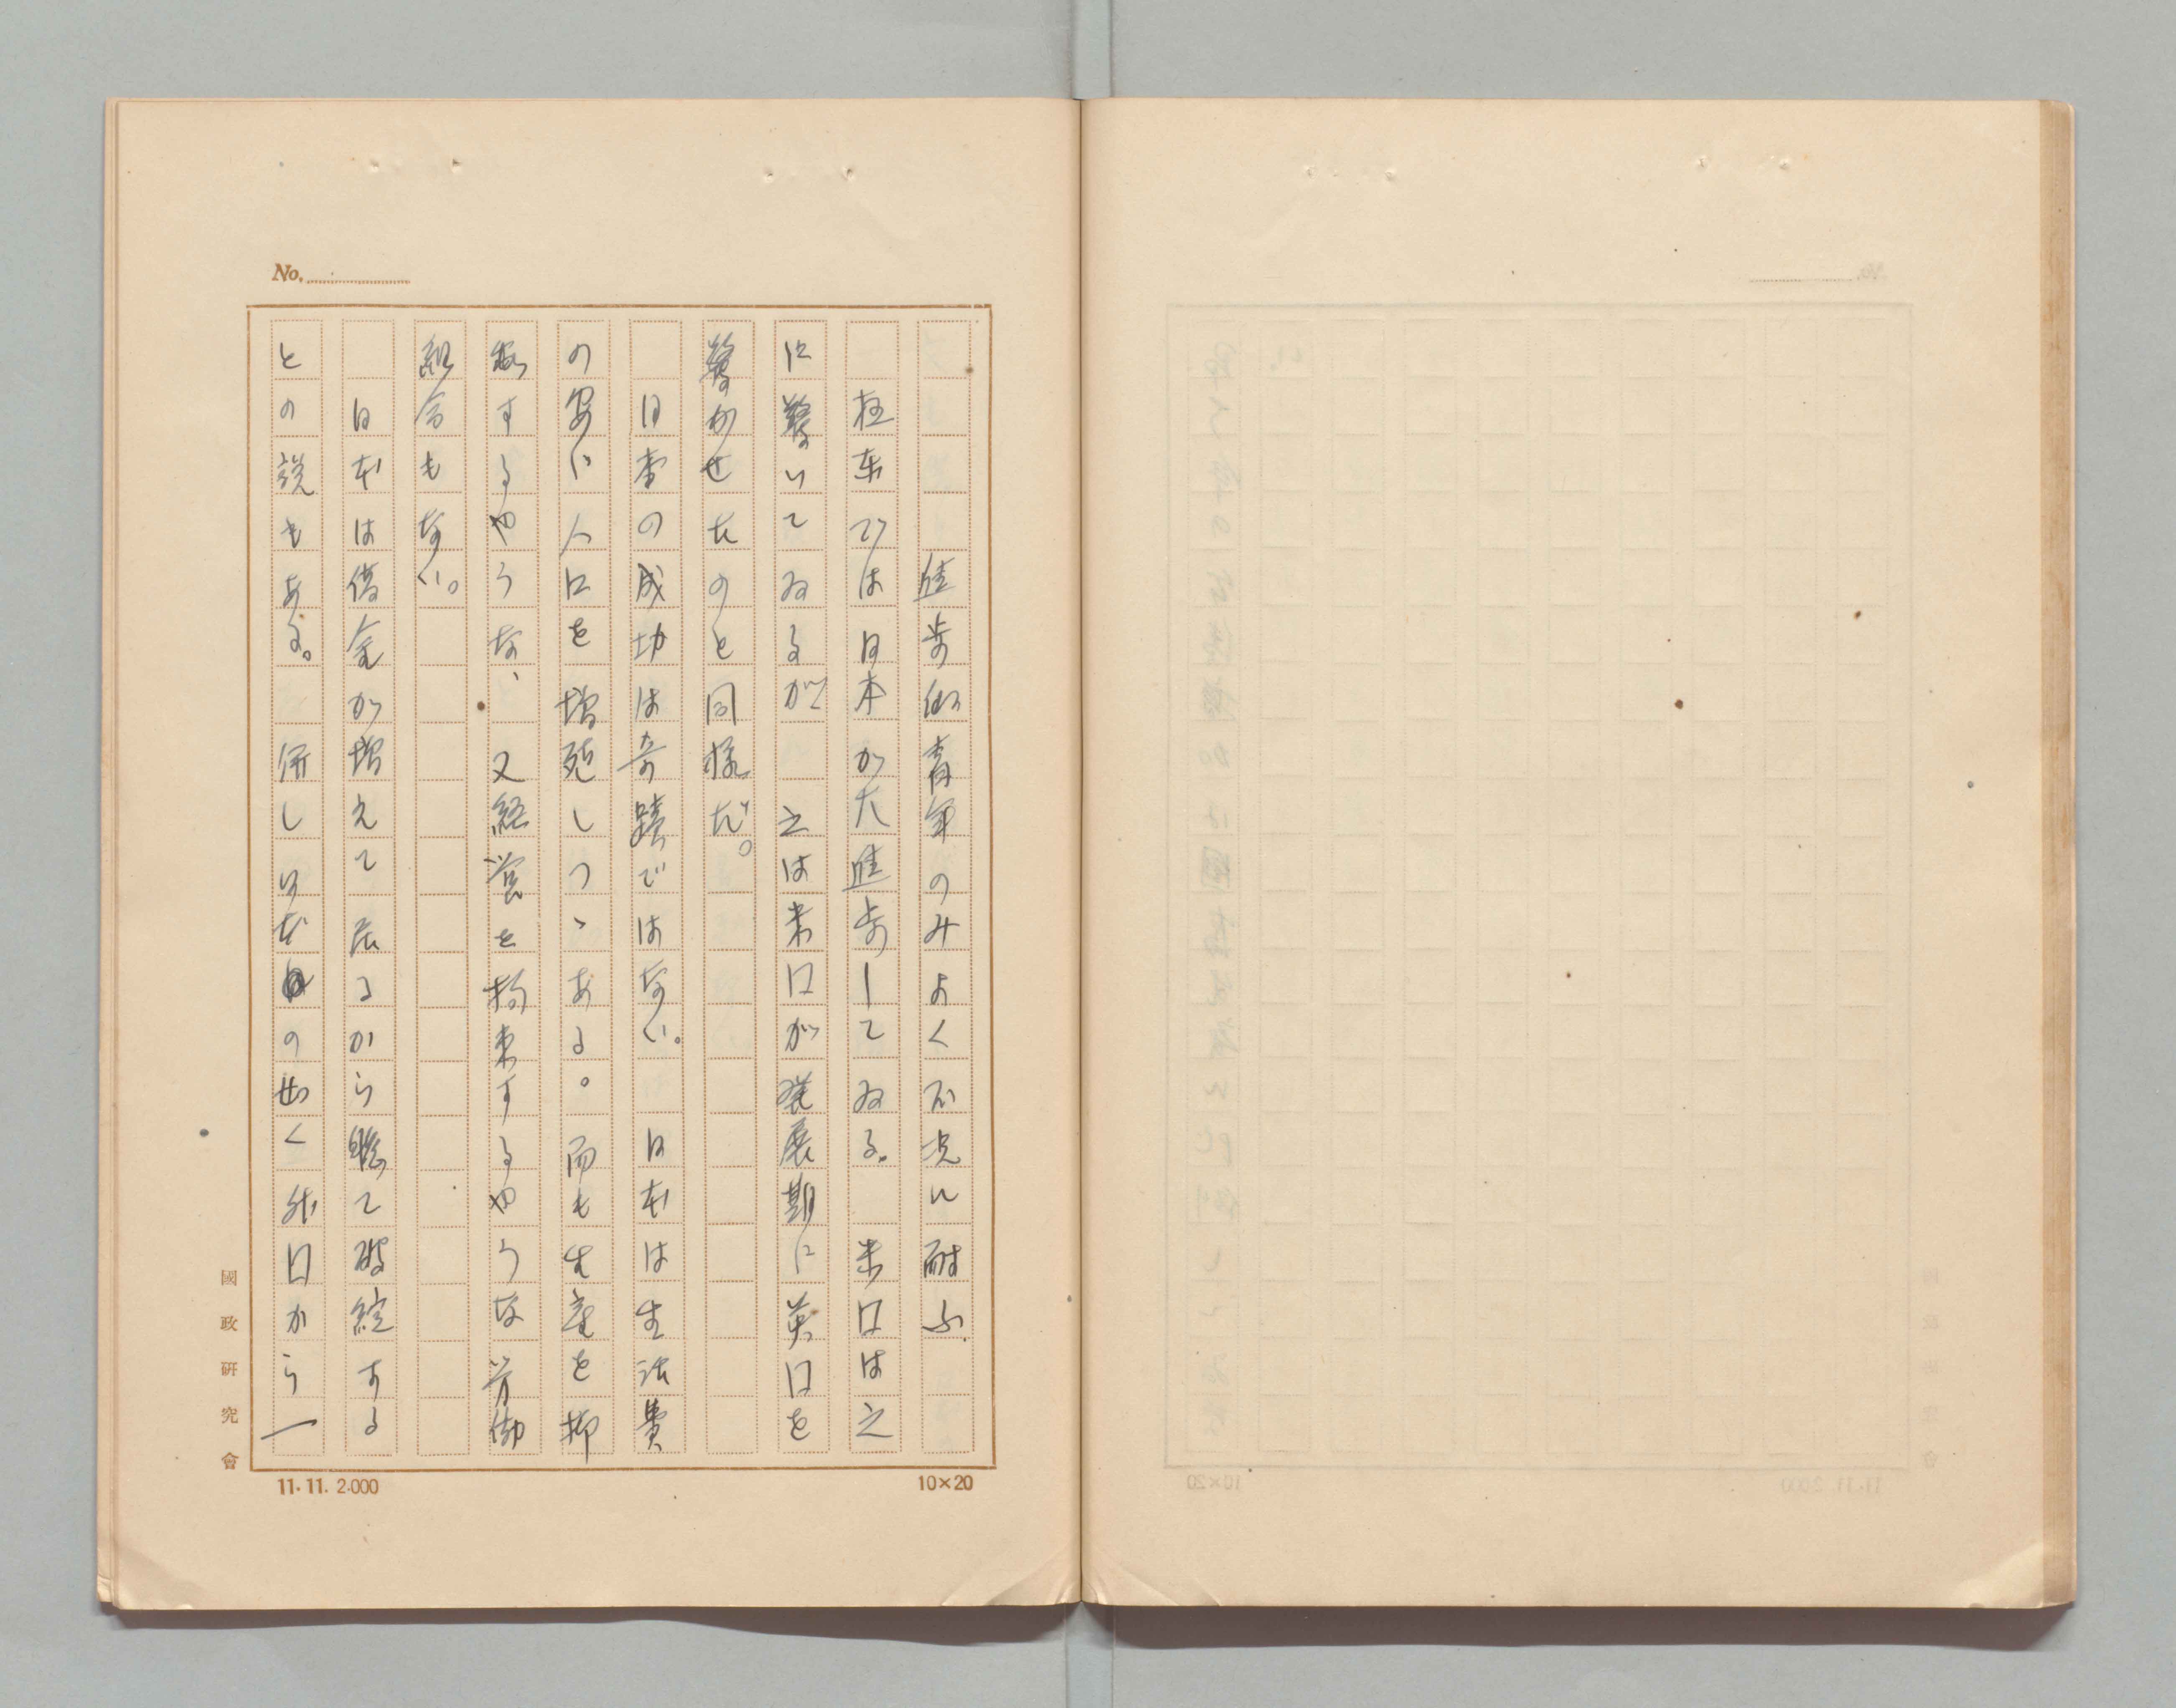 No.
進歩的青年のみよく不況に耐ふ.
極東では日本が大進歩してゐる。 米国は之
に驚いてゐるが 之は米国が発展期に英国を
驚かせたのと同様だ。
日本の成功は奇蹟ではない。 日本は生活費
の安い人口を増殖しつゝある。而も生産を抑
制するやうな、 又経営を拘束するやうな労働
組合もない。
日本は借金が増えて居るから軈て破綻する
との説もある。 併し日本の如く外国から一
國政研究會
11.11. 2.000
10×20